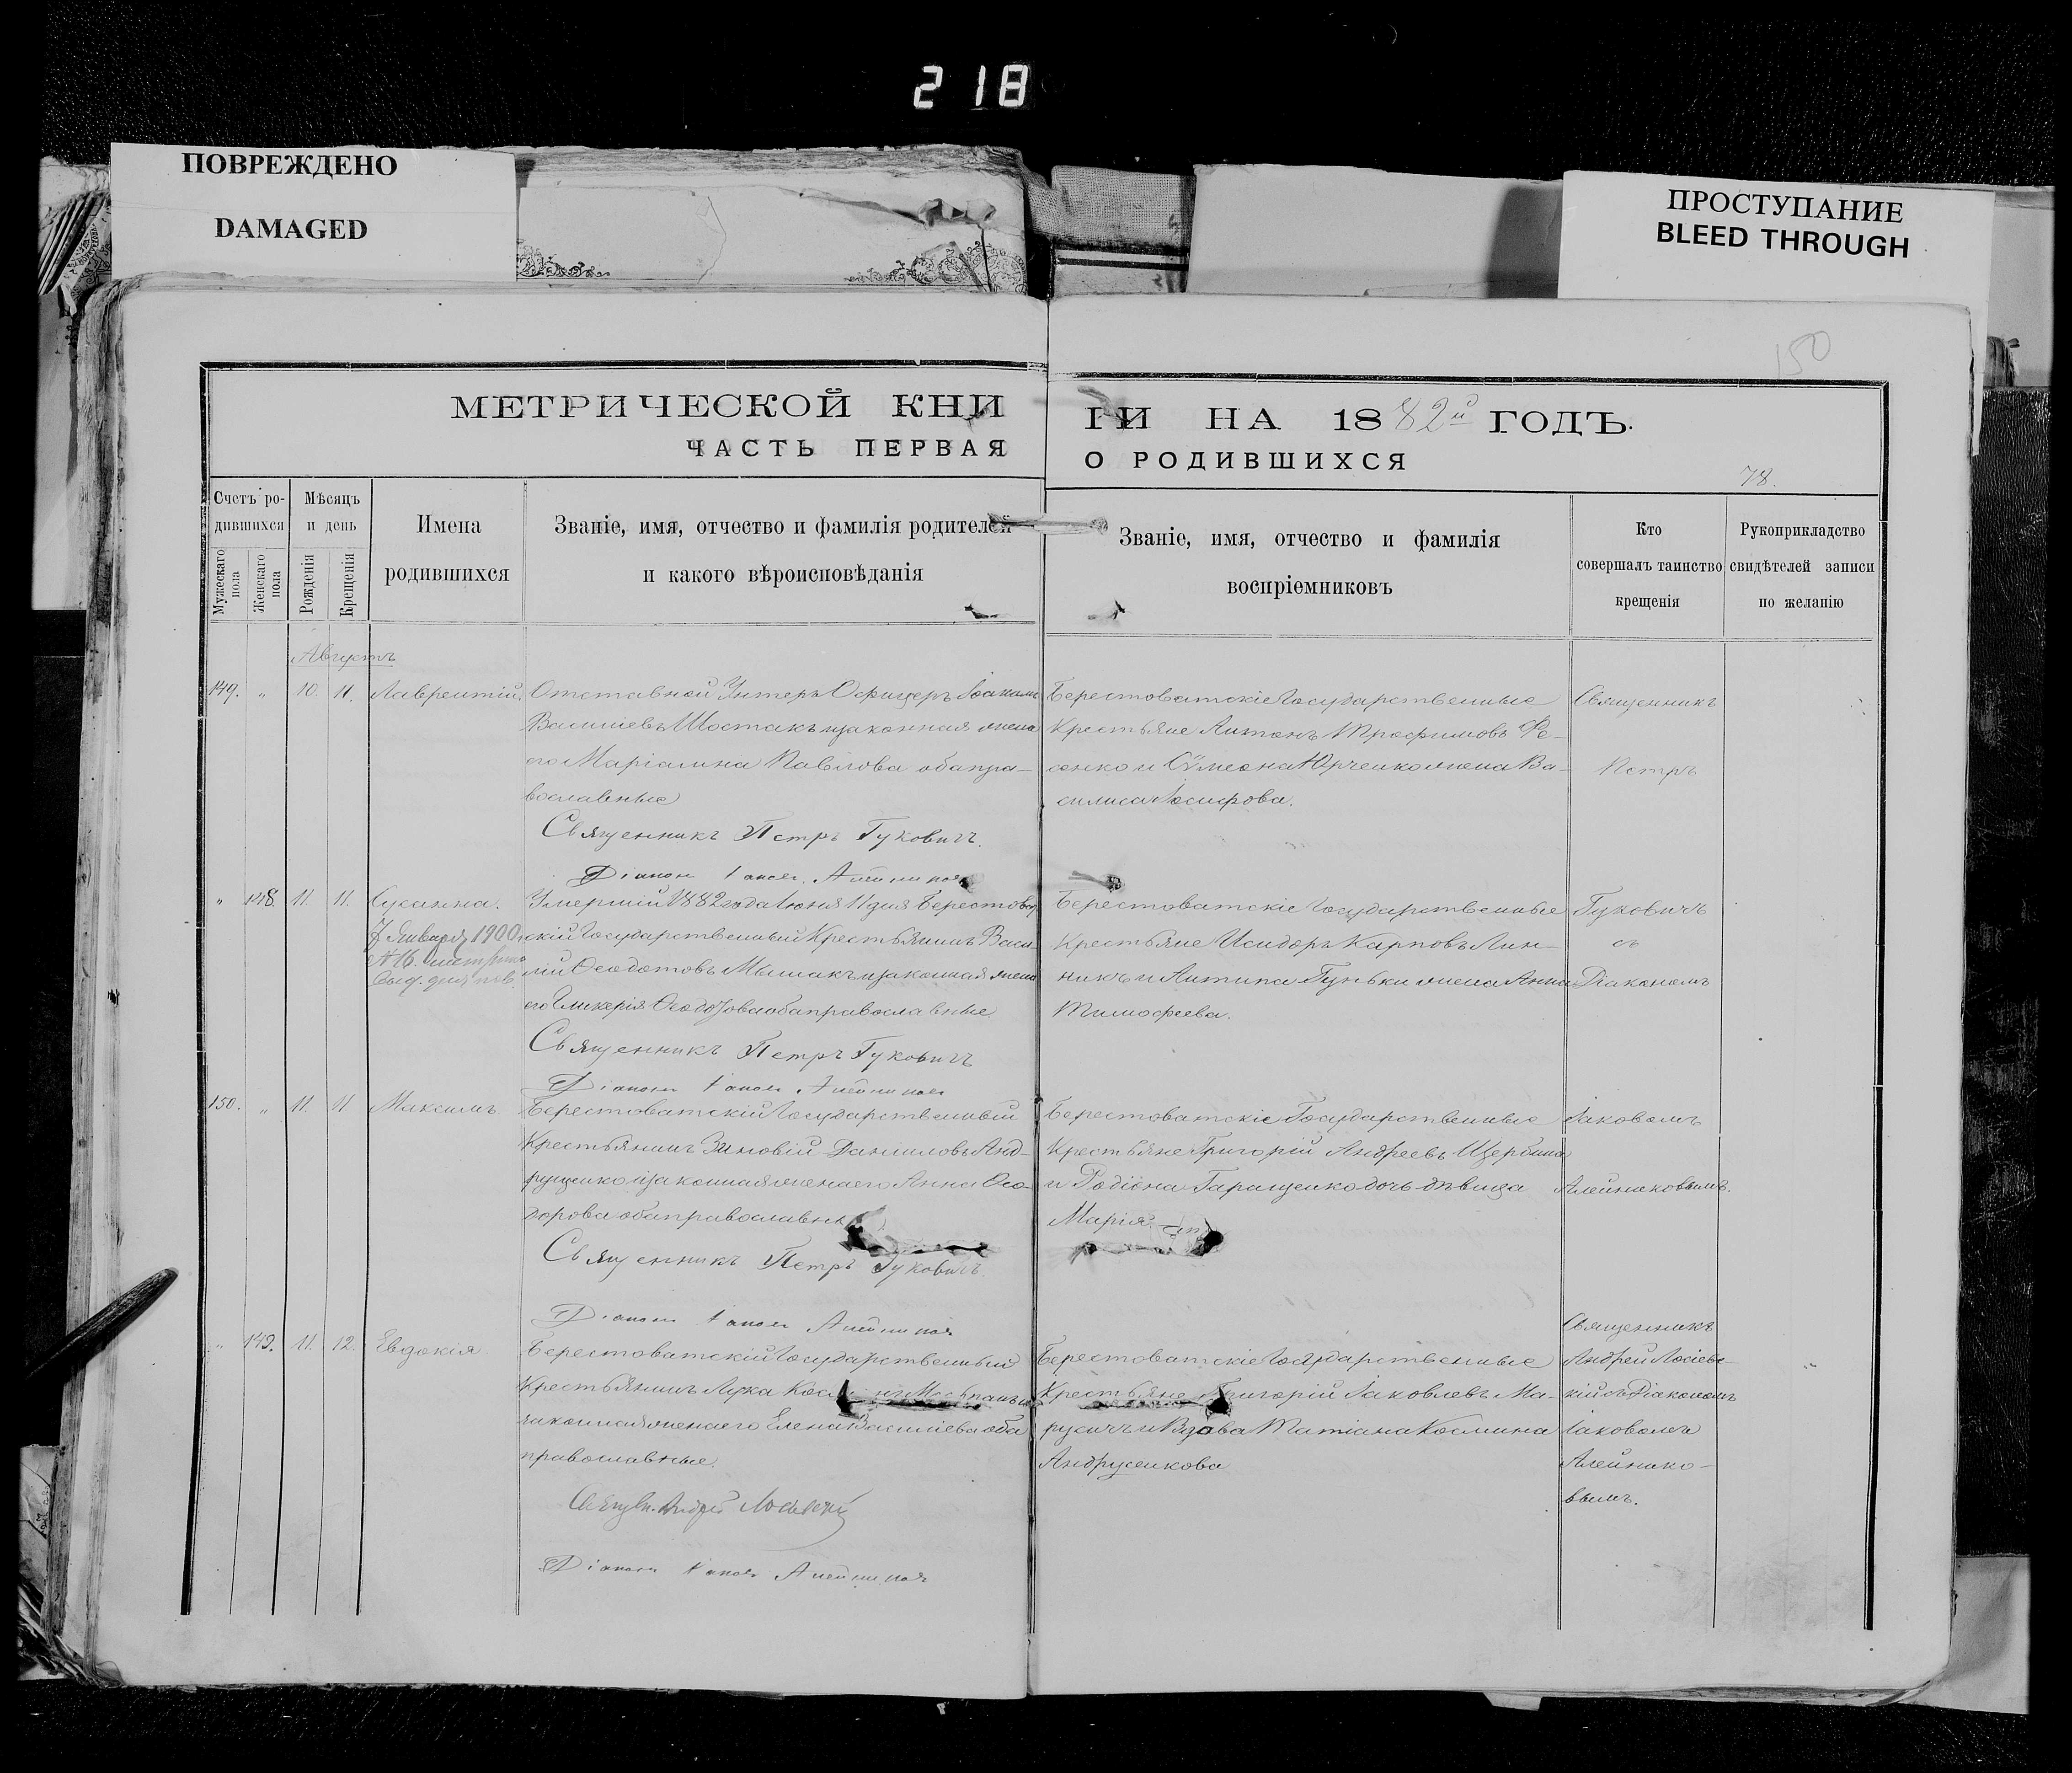 218
ПОВРЕЖДЕНО
DAMAGED
ПРОСТУПАНИЕ
BLEED THROUGH
150
МЕТРИЧЕСКОЙ КНИ
ГИ НА 1882й ГОДЪ.
ЧАСТЬ ПЕРВАЯ
О РОДИВШИХСЯ
78.
Счетъ ро-
дившихся
Мужескаго пола
Женскаго пола
Мѣсяцъ
и день
Рожденія
Крещенія
Имена
родившихся
Званіе, имя, отчество и фамилія родителей
и какого вѣроисповѣданія
Званіе, имя, отчество и фамилія
воспріемниковъ
Кто
совершалъ таинство
крещенія
Рукоприкладство
свидѣтелей записи
по желанію
Августъ
149. " 10. 11. Лаврентій.
Отставной Унтеръ Офицеръ Іоакимъ
Василіевъ Шостакъ и законная жена
его Маріамна Павлова оба пра-
вославные
Священникъ Петръ Гуковичъ.
Діаконъ Іаковъ Алейниковъ
Берестоватскіе Государственные
Крестьяне Антонъ Трофимовъ Фе-
сенко и Сѵмеона Юрченко жена Ва-
силиса Іосифова.
Священникъ
Петръ
" 148. 11. 11. Сусанна.
7 Января 1900 г.
Умершій 1882 года Іюня 11 дня Берестоват
скій Государственный Крестьянинъ Васи
лій Ѳеодотовъ Мышакъ и законная жена
его Гликерія Ѳеодо ова оба православные
Священникъ Петръ Гуковичъ
Діаконъ Іаковъ Алейниковъ
Берестоватскіе Государственные
Крестьяне Исидоръ Карповъ Лин-
никъ и Антипа Гуньки жена Анна
Тимофеева.
Гуковичъ
съ
Діакономъ
150. " 11. 11 Максимъ
Берестоватскій Государственный
Крестьянинъ Зиновій Даниловъ Анд-
рущенко и законная жена его Анна Ѳео-
дорова оба православны
Священникъ Петръ Гуковичъ
Діаконъ Іаковъ Алейниковъ
Берестоватскіе Государственные
Крестьяне Григорій Андреевъ Щербина
и Родіона Геращенко дочь дѣвица
Марія.
Іаковомъ
Алейниковымъ.
" 149. 11. 12. Евдокія
Берестоватскій Государственный
Крестьянинъ Лука
законная жена его Елена Василіева оба
православные.
Священ. Андрей Лосіевскій
Діаконъ Іаковъ Алейниковъ
Берестоватскіе Государственные
Крестьяне Григорій Іаковлевъ Ма-
русичъ и Вдова Татіана Космина
Андрусенкова
Священникъ
Андрей Лосіевс-
кій съ Діакономъ
Іаковомъ
Алейнико-
вымъ.